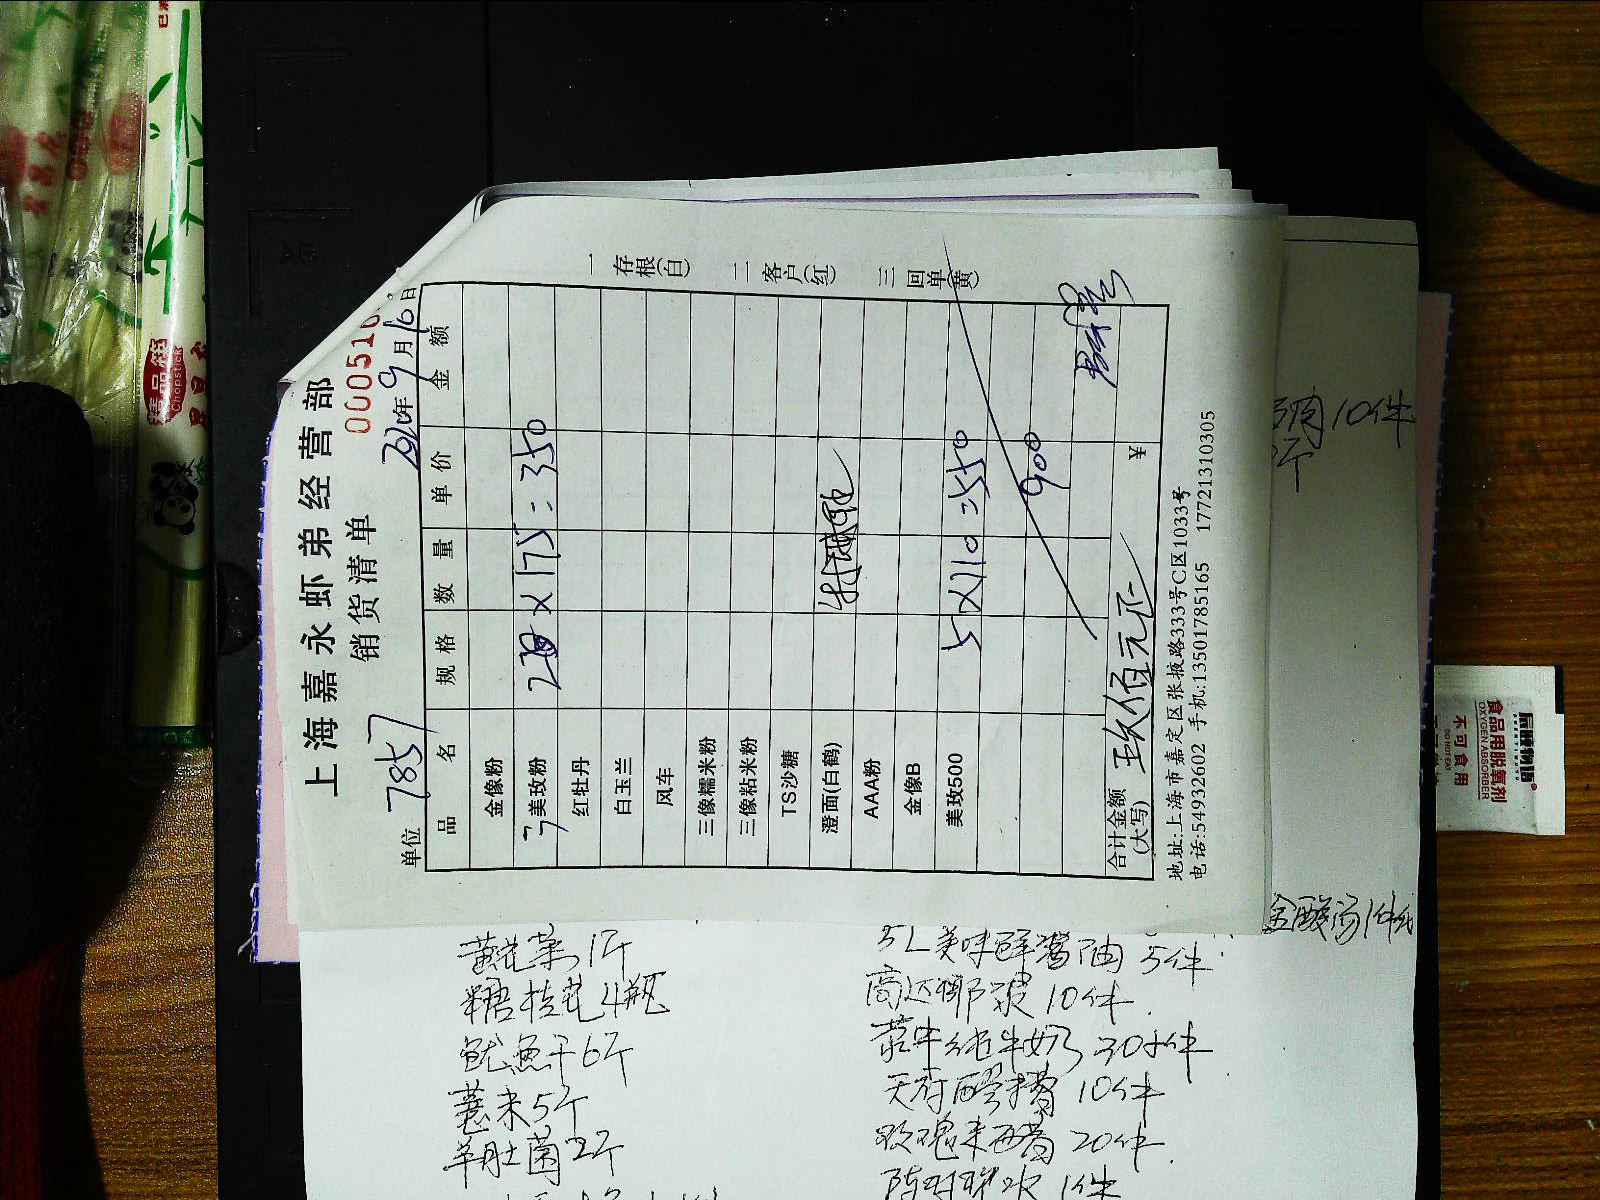 上海嘉永虾弟经营部
销货清单
000510
单位 7857 2020年9月16日
品名 规格 数量 单价 金额
金像粉
美玫粉 2 X 175 = 350
红牡丹
白玉兰
风车
三像糯米粉
三像粘米粉
TS沙糖
澄面(白鹤)
AAA粉
金像B
美玫500 5 X 110 = 550
900
合计金额(大写) 玖佰元正 ¥
地址:上海市嘉定区张掖路333号C区1033号
电话:54932602 手机:13501785165 17721310305
一存根(白) 二客户(红) 三回单(黄)
黄花菜1斤
糖桂花4瓶
鱿鱼干6斤
薏米5斤
羊肚菌2斤
5L美味鲜酱油 5件
高达椰浆 10件
菜牛纯牛奶 30件
天府醪糟 10件
玫瑰米醋 20件
1件
10件
斤
金酸汤1件
精品筷
Chopstick
食品用脱氧剂
OXYGEN ABSORBER
不可食用
DO NOT EAT